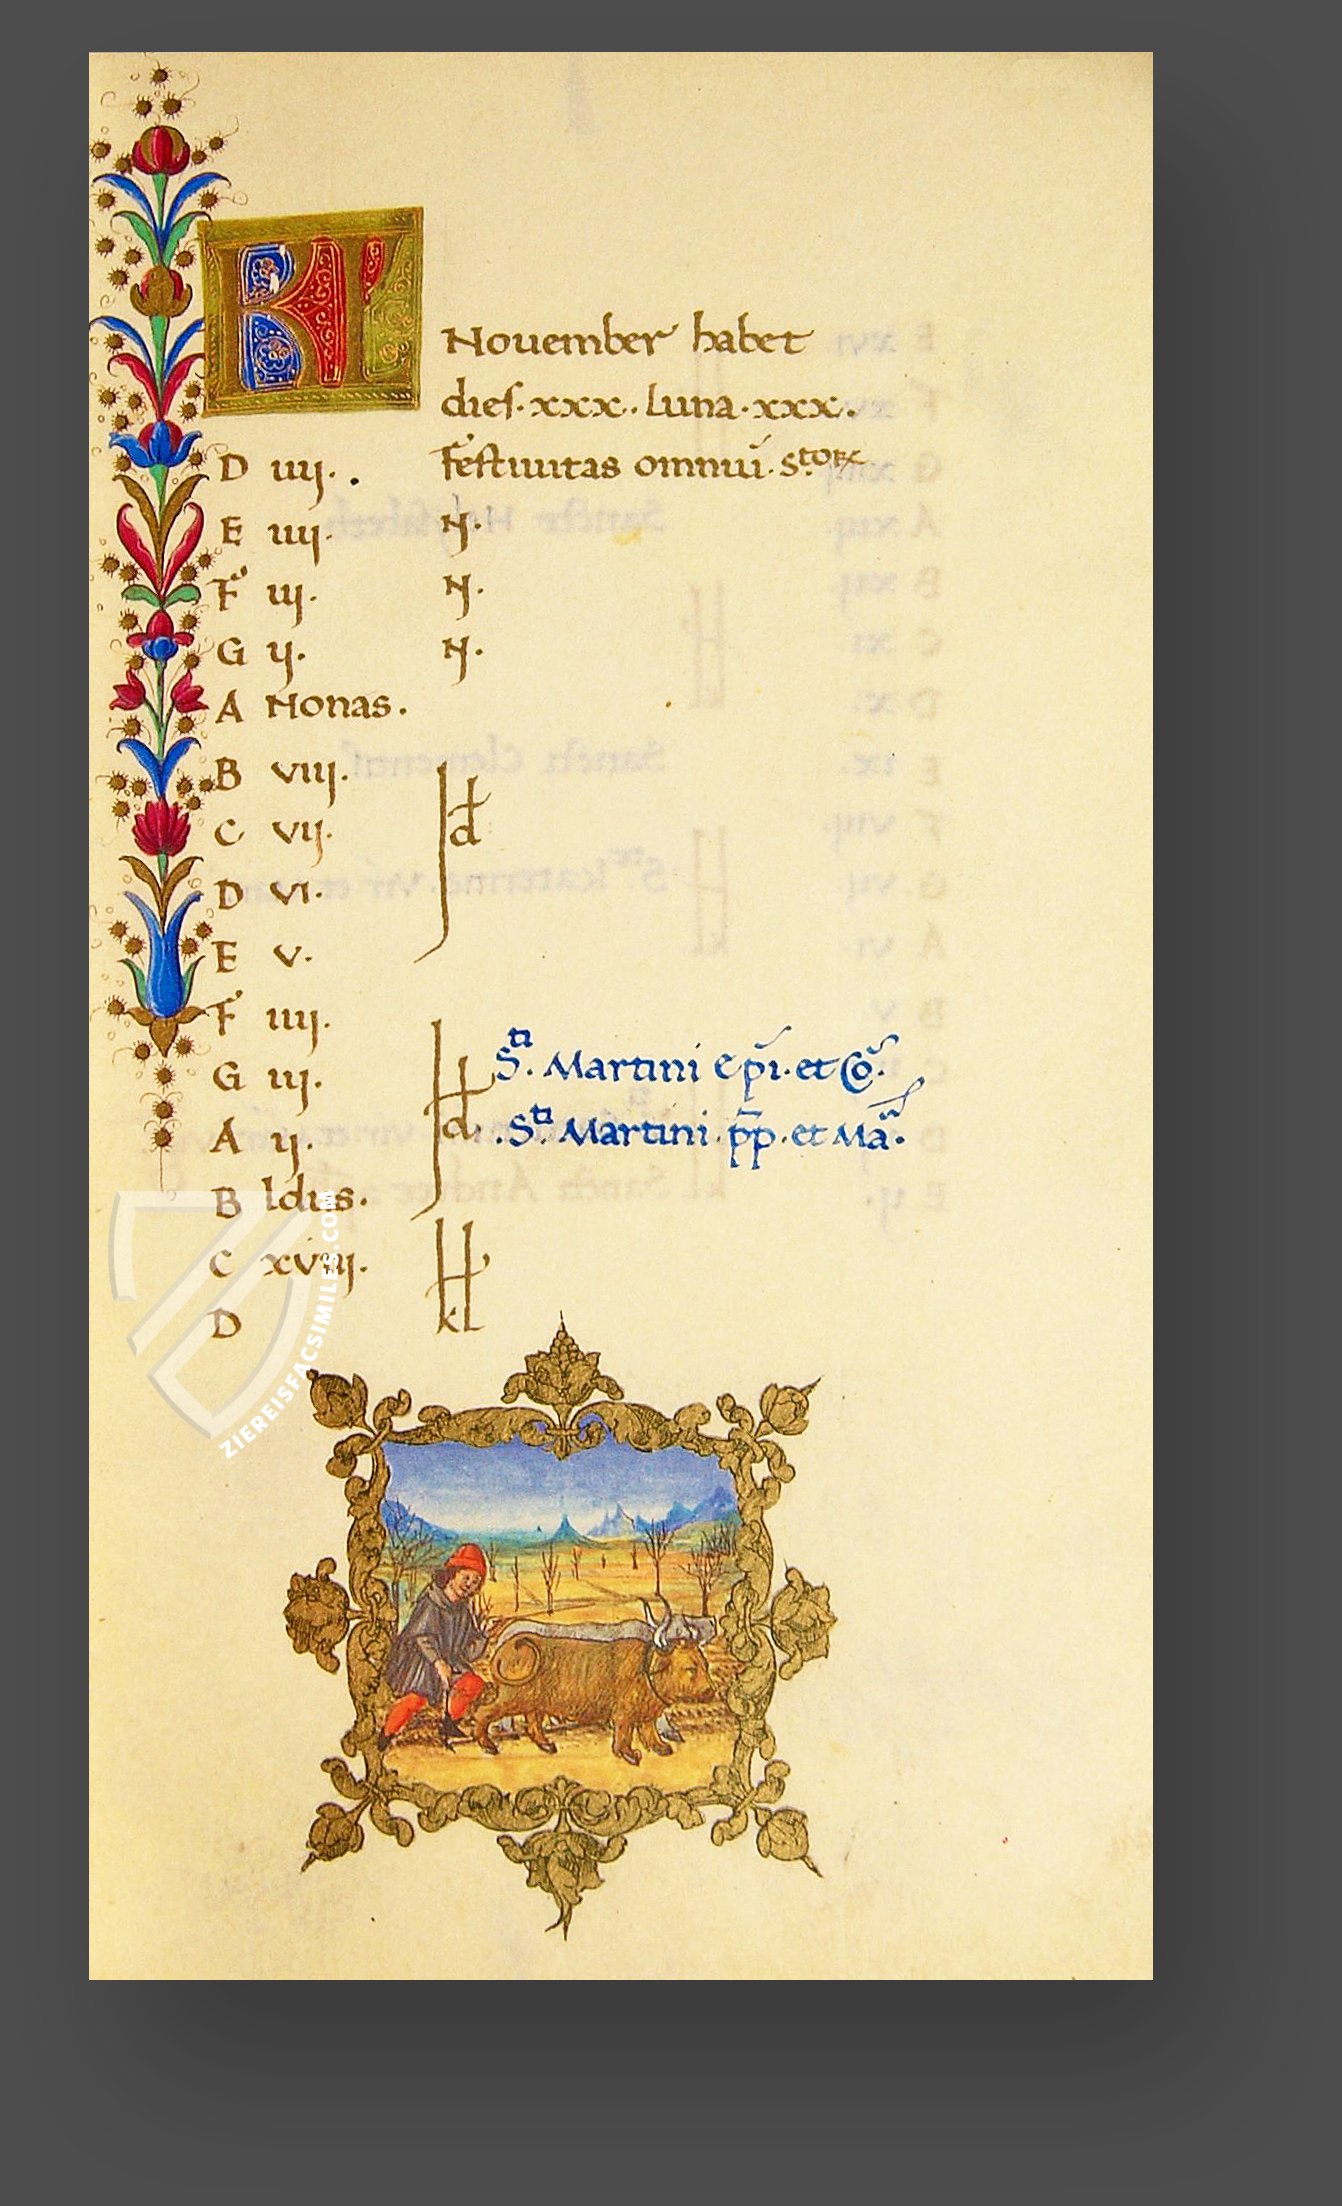 KL
November habet
dies·xxx·· Luna·xxx·
D iiij· · Festiuitas omniū·S·toꝝ
E iiij· N·
F iij· N·
G ij· N·
A Nonas·
B viij·
C vij· Id
D vi·
E v·
F iiij·
G iij· Sti· Martini epi·et Co·
A ij· Id ·Sti· Martini·pp·et Ma·
B Idus·
C xviij·
D kL
ZIEREISFACSIMILES.COM